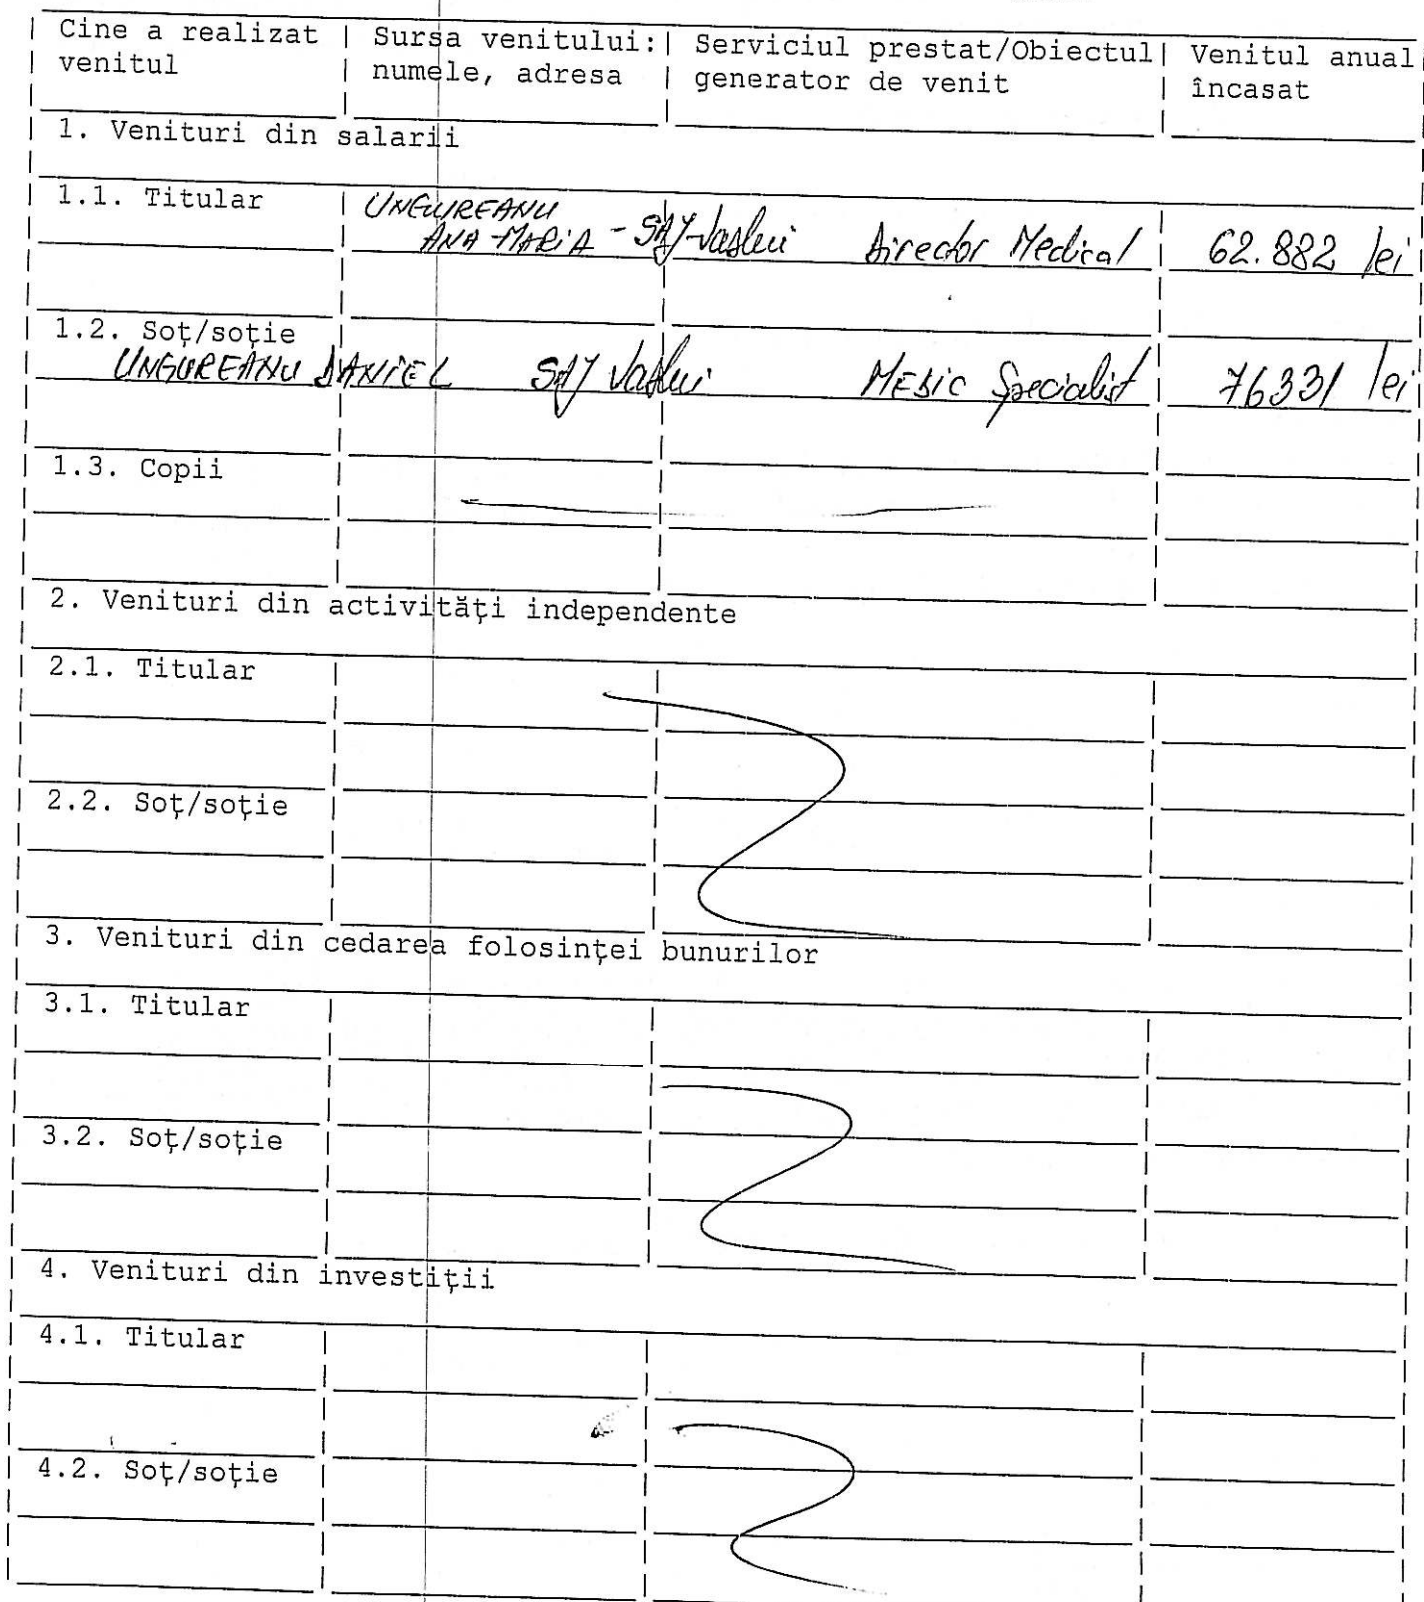 Cine a realizat venitul | Sursa venitului: numele, adresa | Serviciul prestat/Obiectul generator de venit | Venitul anual încasat
1. Venituri din salarii
1.1. Titular | UNGUREANU
ANA-MARIA - SAJ Vaslui Director Medical 62.882 lei
1.2. Soţ/soţie
UNGUREANU DANIEL SAJ Vaslui MEDIC Specialist 76331 lei
1.3. Copii
2. Venituri din activităţi independente
2.1. Titular
2.2. Soţ/soţie
3. Venituri din cedarea folosinţei bunurilor
3.1. Titular
3.2. Soţ/soţie
4. Venituri din investiţii
4.1. Titular
4.2. Soţ/soţie